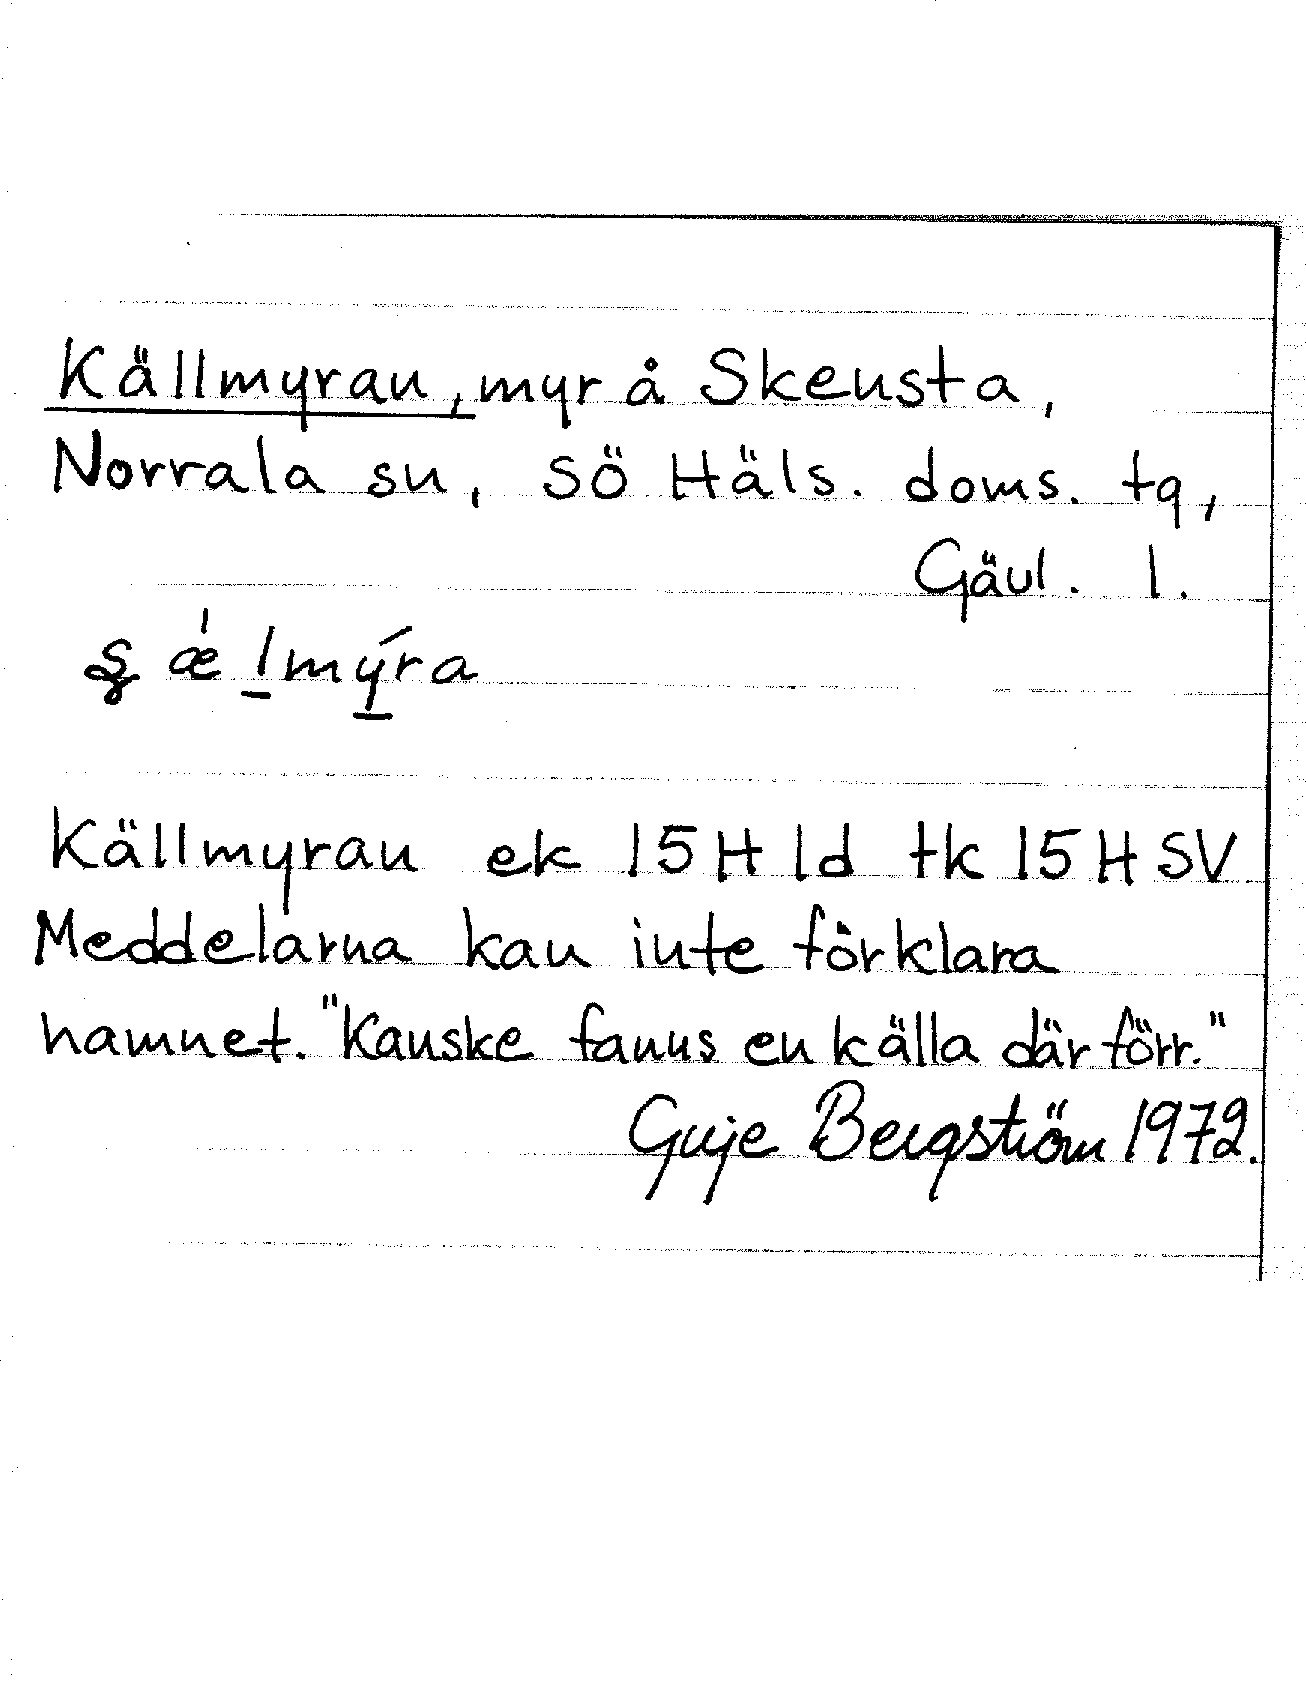 Källmyran, myr å Skensta,
Norrala sn, Sö Häls. doms. tg,
Gävl. l.
ʂ ǽ lmýra
Källmyran ek 15H 1d tk 15H SV
Meddelarna kan inte förklara
namnet. "Kanske fanns en källa där förr."
Guje Bergström 1972.